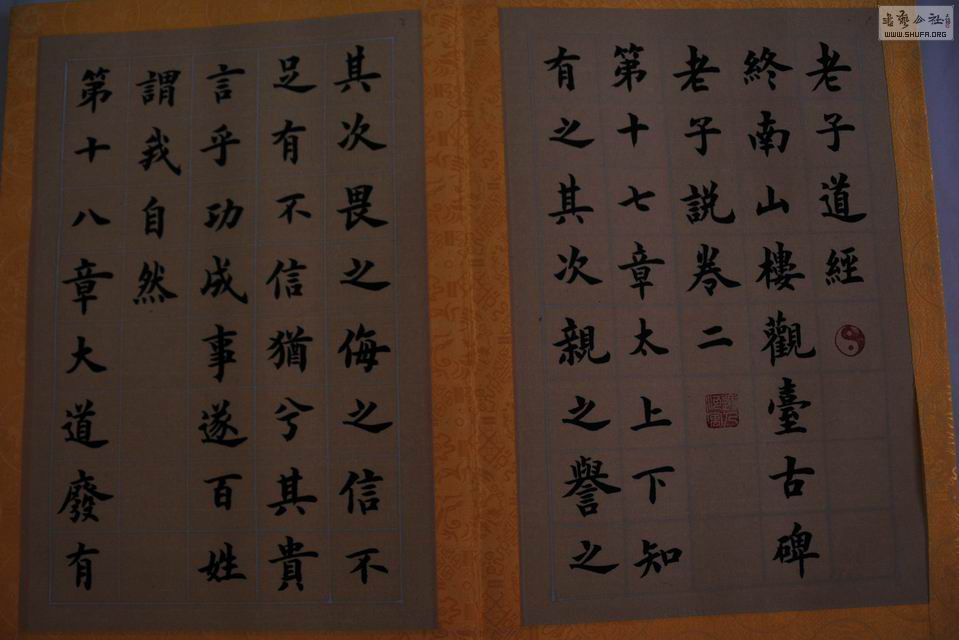 老子道經
終南山樓觀臺古碑
老子説卷二
第十七章太上下知
有之其次親之譽之
其次畏之侮之信不
足有不信猶兮其貴
言乎功成事遂百姓
謂我自然
第十八章大道廢有
WWW.SHUFA.ORG